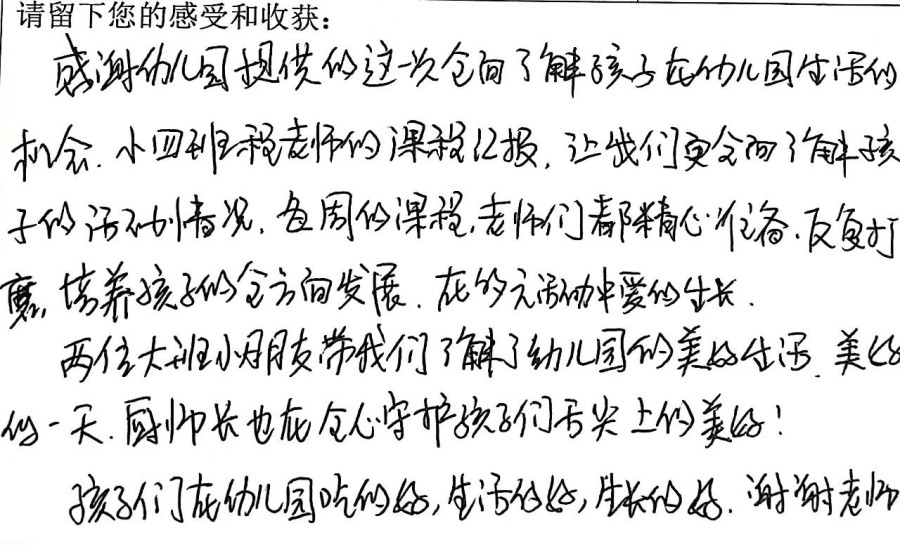 请留下您的感受和收获：
感谢幼儿园提供的这一次全面了解孩子在幼儿园生活的
机会。小四班程老师的课程汇报，让我们更全面了解孩
子的活动情况，每周的课程，老师们都精心准备、反复打
磨，培养孩子的全方面发展，在多元活动中爱的生长。
两位大班小朋友带我们了解了幼儿园的美好生活、美好
的一天。厨师长也在全心守护孩子们舌尖上的美好！
孩子们在幼儿园吃的好，生活的好，生长的好。谢谢老师